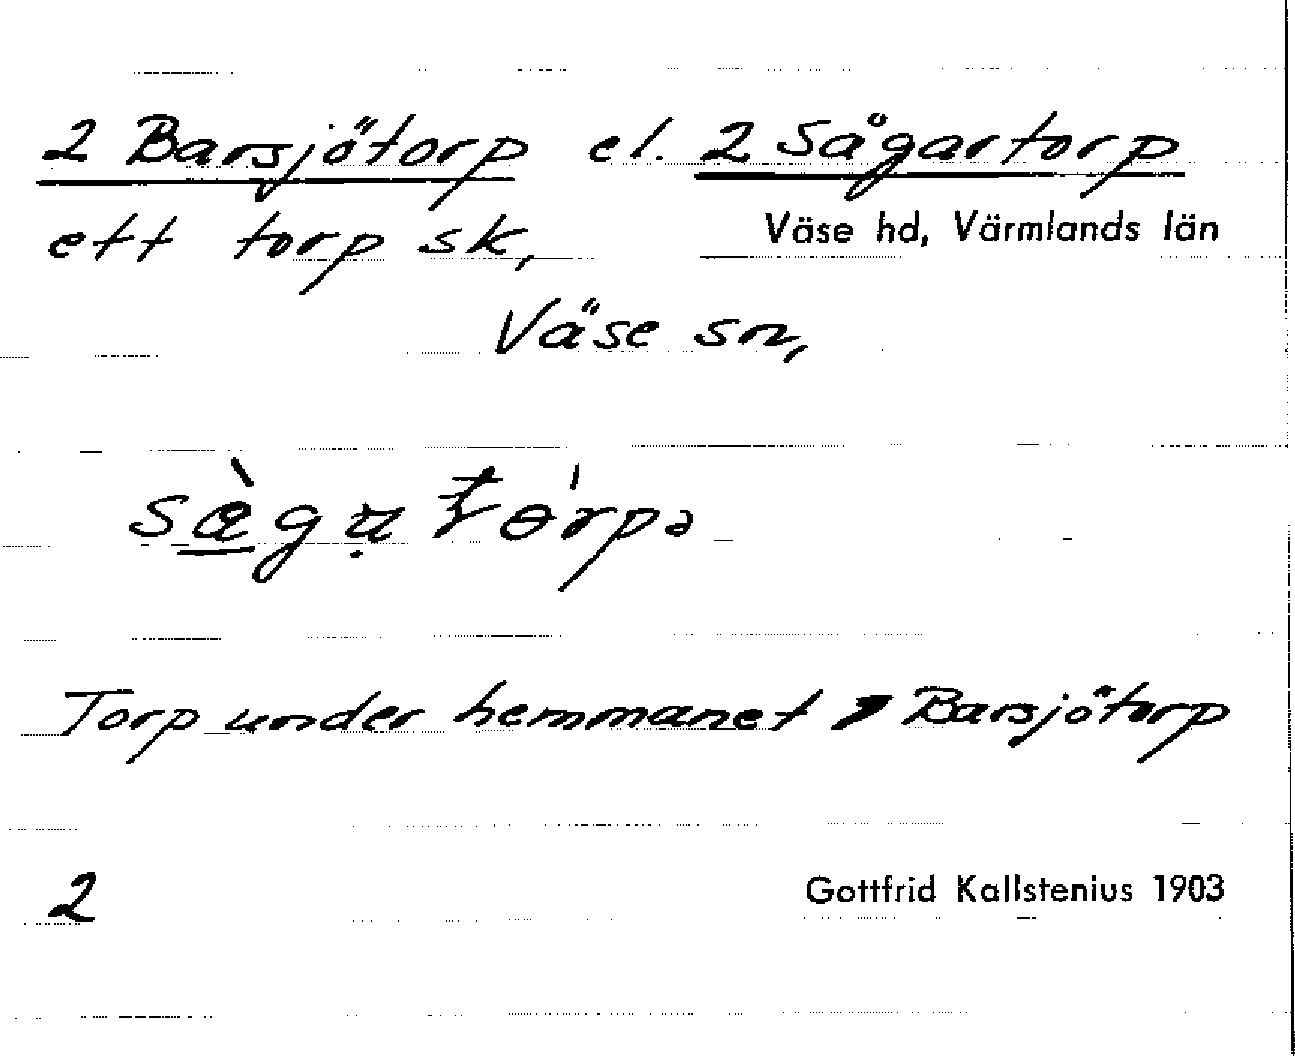 2 Barsjötorp el. 2 Sågartorp
ett torp sk,
Väse hd, Värmlands län
Väse sn,
Torp under hemmanet Barsjötorp
2
Gottfrid Kallstenius 1903